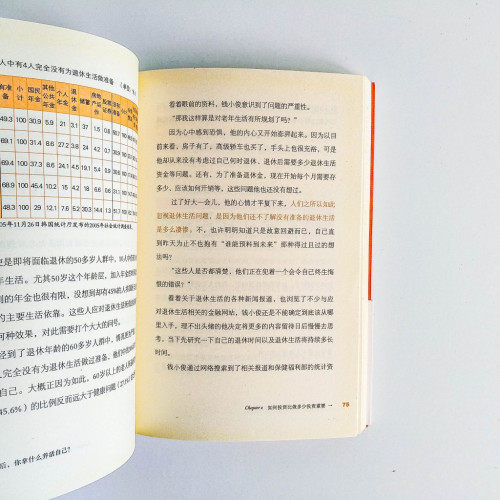 人中有4人完全没有为退休生活做准备
小计 国民年金 其他公共年金 个人年金 退休金 储蓄
49.3 100 30.9 5.9 21 3.1 37 1.5 0.8
100 34.4 8.6 27.2 3.8 24.2
100 36.3 8.6 24.1 4.5 19.1
68.9 100 45.4 10.2 15 4.2
48.3 100 31.8 12.1
05年11月26日韩国统计厅发布的2005年社会统计调查报告
是即将面临退休的50多岁人群中,
。尤其50岁这个年龄层,加入年金的
到的年金也很有限。没想到却有45%的人
的主要生活依靠。这些人应对退休生活
何种效果,对此需要打个大大的问号。
经到了退休年龄的60多岁人群中,
人完全没有为退休生活做过准备、
自己。大概正因为如此,60岁以上的
45.6%)的比例反而远大于健康问题(27.
后,你拿什么养活自己?
看着眼前的资料,钱小俊意识到了问题的严重性。
“那我这样算是对老年生活有所规划了吗?”
因为心中感到恐惧,他的内心又开始膨湃起来。因为以
前来看,房子有了,高级轿车也买了,手头上也很充裕,可是
他却从来没有考虑过自己何时退休、退休后需要多少退休生活
资金等问题。还有,为了准备退休金,现在开始每个月需要存
多少、应该如何开销等,这些问题他也还没有想过。
过了好大一会儿,他的心情才平复下来,人们之所以如此
忽视退休生活问题,是因为他们还不了解没有准备的退休生活
是多么凄惨。不,也许明明知道只是故意回避而已,自己直
到昨天为止不也抱有“谁能预料到未来”那种得过且过的想
法吗?
“这些人是否都清楚,他们正在犯着一个会令自己终生悔
恨的错误?”
看着关于退休生活的各种新闻报道,也浏览了不少与应
对退休生活相关的金融网站,钱小俊还是不能确定到底该从哪
里入手。理不出头绪的他决定将更多的内容留待日后慢慢去思
考,当下先研究一下自己的退休时间以及退休生活将持续多长
时间。
钱小俊通过网络搜索到了相关报道和保健福利部的统计资
Chapter 如何投资比做多少投资重要 75